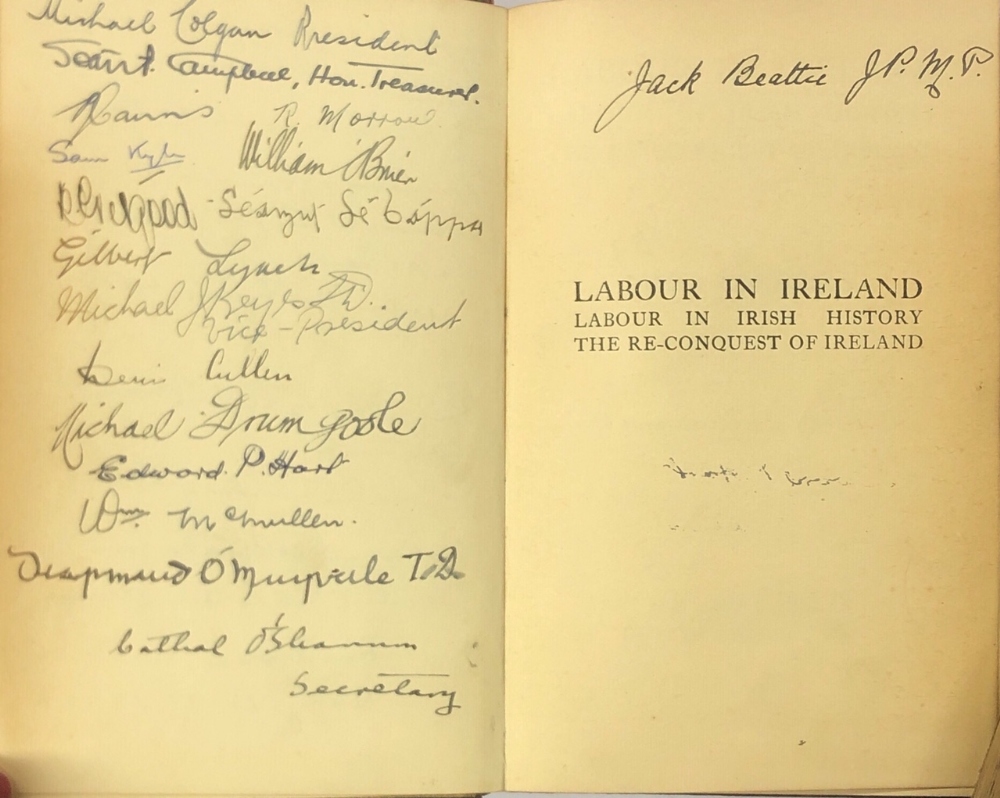 Michael Colgan President
Seán P. Campbell, Hon. Treasurer.
R. Morrow
Sam Kyle William O'Brien
Gilbert Lynch
Michael J Keyes T.D.
Vice-President
Denis Cullen
Michael Drumgoole
Edward P. Hart
Wm McMullen.
Diarmuid Ó Muirthile T.D.
Cathal O'Shannon
Secretary
Jack Beattie J.P. M.P.
LABOUR IN IRELAND
LABOUR IN IRISH HISTORY
THE RE-CONQUEST OF IRELAND